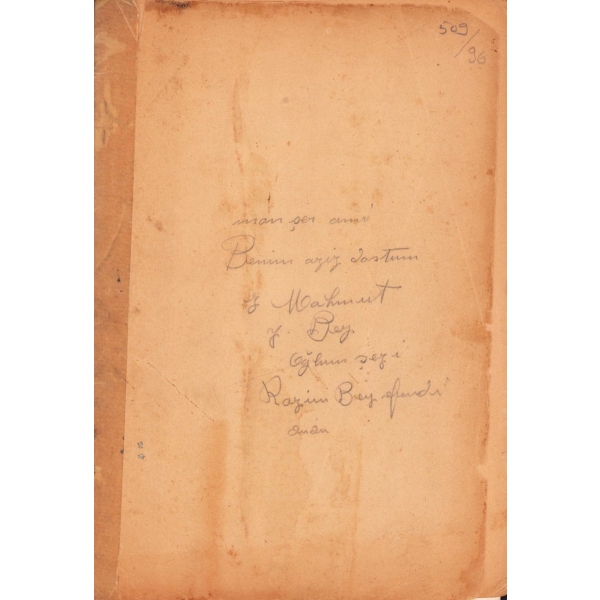 509/96
mon şer ami
Benim aziz dostum
Mahmut
y. Bey
Oğlum
Kazim Bey efendi